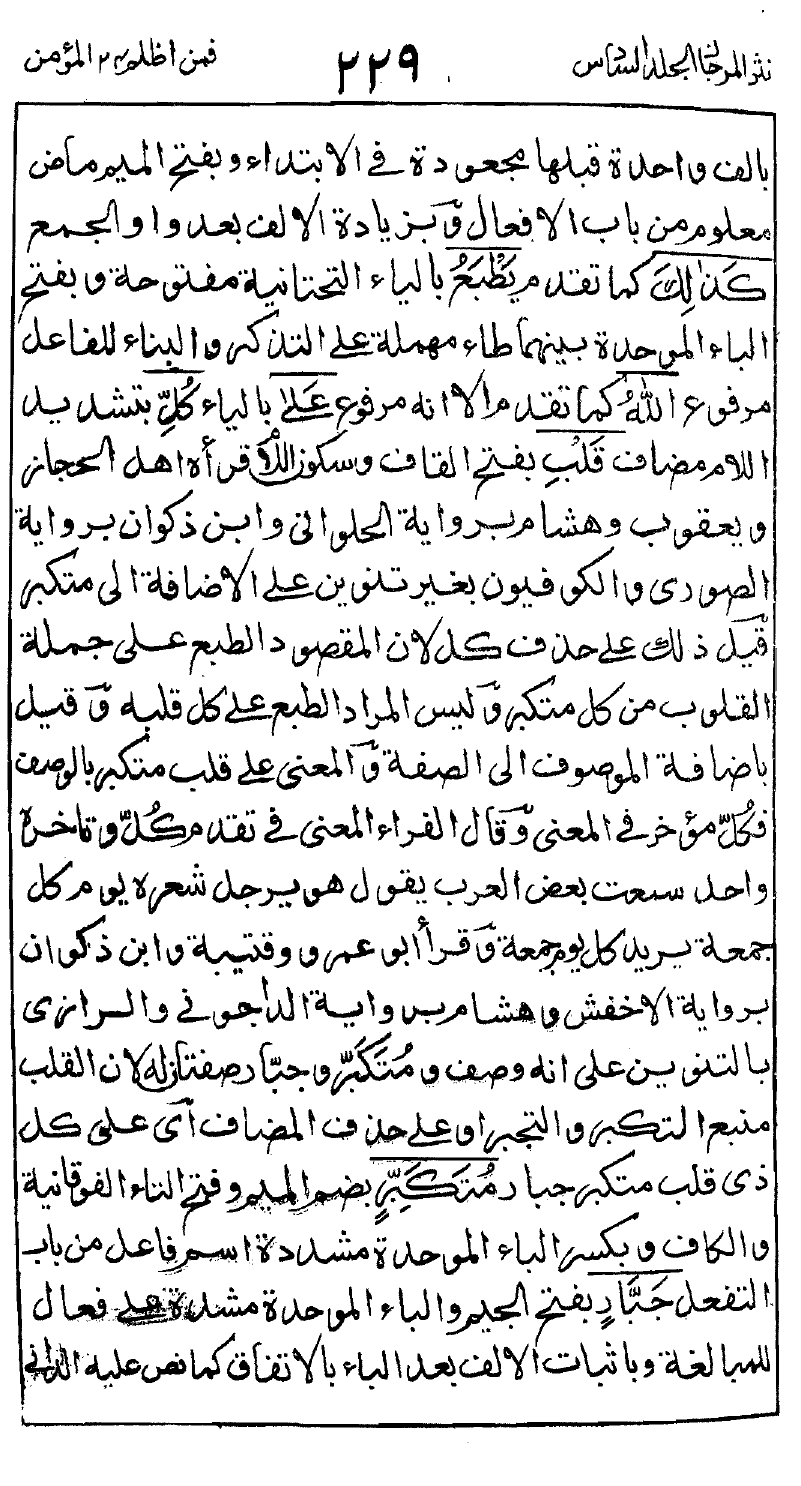 نثر المرجان الجلد السادس ٢٢٩ فمن اظلم ٢٤ المؤمن
بالف واحدة قبلها مجعودة في الابتداء وبفتح الميم ماض
معلوم من باب الافعال وَبزيادة الالف بعد واو الجمع
كَذٰلِكَ كما تقدم يَطْبَعُ بالياء التحتانية مفتوحة وبفتح
الباء الموحدة بينهما طاء مهملة على التذكير والبناء للفاعل
مرفوع اللهُ كما تقدم الا انه مرفوع عَلٰى بالياء كُلِّ بتشديد
اللام مضاف قَلْبِ بفتح القاف وسكون اللام قرأه اهل الحجاز
ويعقوب وهشام برواية الحلواني وابن ذكوان برواية
الصوري والكوفيون بغير تنوين على الاضافة الى متكبر
قيل ذلك على حذف كل لان المقصود الطبع على جملة
القلوب من كل متكبر وَليس المراد الطبع على كل قلبه وَقيل
باضافة الموصوف الى الصفة وَالمعنى على قلب متكبر بالوصف
فكُلّ مؤخر في المعنى وَقال الفراء المعنى في تقدم كُلّ وتاخره
واحد سمعت بعض العرب يقول هو يرجل شعره يوم كل
جمعة يريد كل يوم جمعة وَقرأ ابو عمرو وقتيبة وابن ذكوان
برواية الاخفش وهشام برواية الداجوني والرازي
بالتنوين على انه وصف ومُتَكَبّر وجبّار صفتان له لان القلب
منبع التكبر والتجبر او على حذف المضاف اَى على كل
ذى قلب متكبر جبار مُتَكَبِّرٍ بضم الميم وفتح التاء الفوقانية
والكاف وبكسر الباء الموحدة مشددة اسم فاعل من باب
التفعل جَبَّارٍ بفتح الجيم والباء الموحدة مشددة على فعال
للمبالغة وباثبات الالف بعد الباء بالاتفاق كما نص عليه الداني